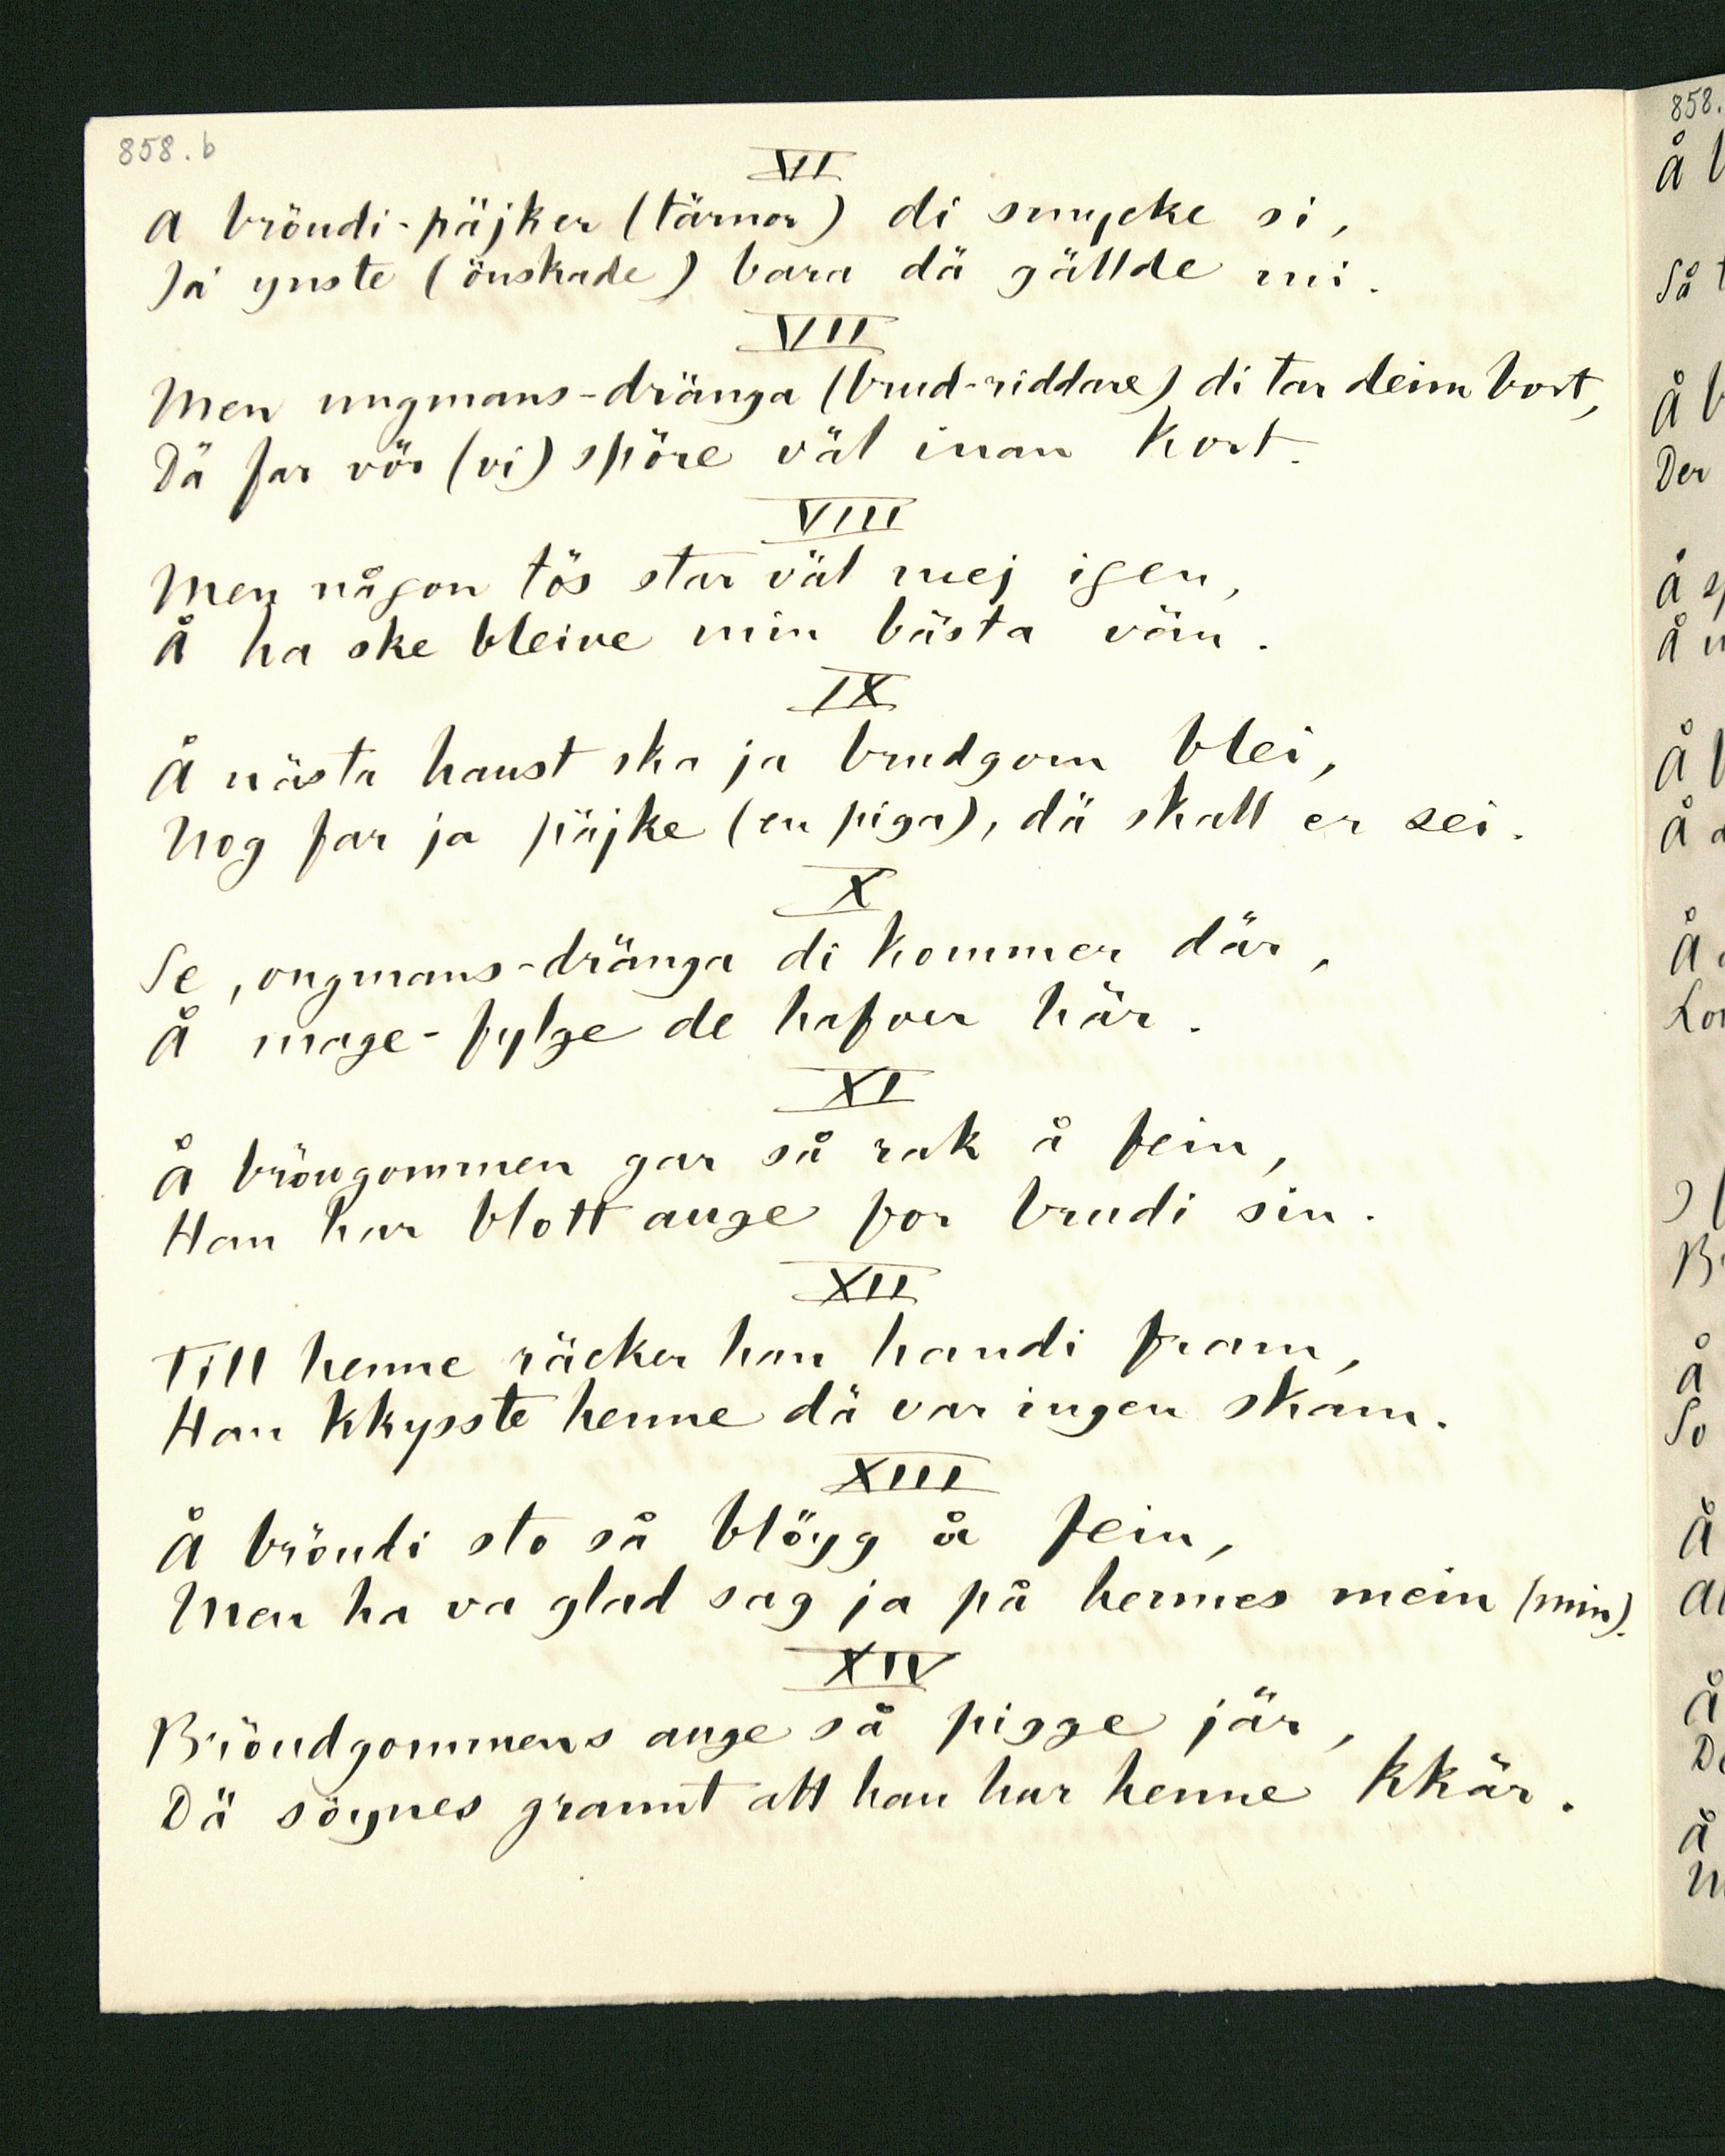 858.b
VI
A bröudi-päjker (tärnor) di smycke si,
Ja ynste (önskade) bara dä gällde mi.
VII
Men ungmans-dränga (brud-riddare) di tar deim bort,
Dä far vör (vi) spöre väl inan kort.
VIII
Men någon tös star väl mej igen,
Å ha ske bleive min bästa vän.
IX
Å nästa haust ska ja brudgom blei,
Nog far ja päjke (en piga), dä skall er sei.
X
Se, ongmans-dränga di kommer där,
Å mage-fylge de hafver här.
XI
Å bröugommen gar så rak å fein,
Han har blott auge for brudi sin.
XII
Till henne räcker han handi fram,
Han kkysste henne dä var ingen skam.
XIII
Å bröudi sto så blöyg å fein,
Men ha va glad sag ja på hennes mein (min).
XIV
Bröudgommens auge så pigge jär,
Dä söynes grannt att han har henne kkär.
858.
Å
Så
Å
Der
Å
Å
Å
Å
Å
Å
So
Å
Å
Å